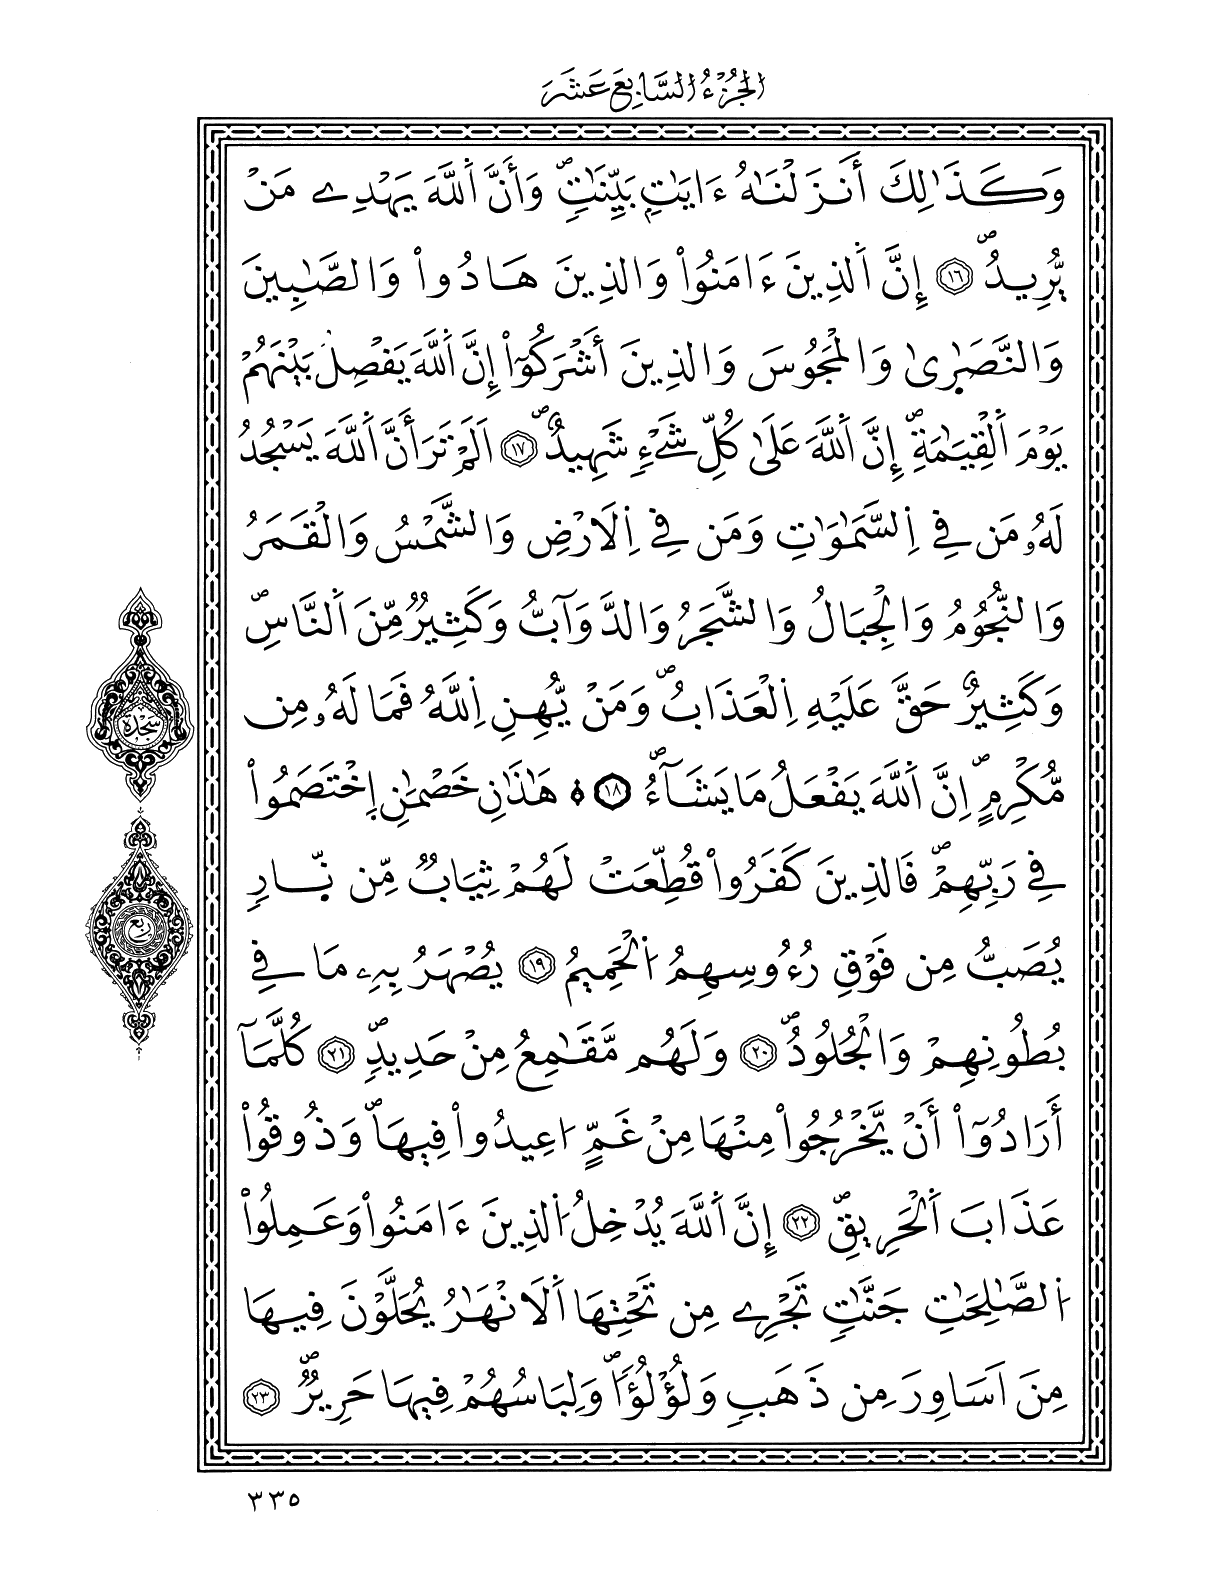 الجزء السابع عشر
وَكَذَٰلِكَ أَنزَلْنَٰهُ ءَايَٰتِۢ بَيِّنَٰتٖۖ وَأَنَّ اَ۬للَّهَ يَهْدِے مَنْ
يُّرِيدُۖ ١٦ إِنَّ اَ۬لذِينَ ءَامَنُواْ وَالذِينَ هَادُواْ وَالصَّٰبِينَ
وَالنَّصَٰرَىٰ وَالْمَجُوسَ وَالذِينَ أَشْرَكُوٓاْ إِنَّ اَ۬للَّهَ يَفْصِلُ بَيْنَهُمْ
يَوْمَ اَ۬لْقِيَٰمَةِۖ إِنَّ اَ۬للَّهَ عَلَىٰ كُلِّ شَےْءٖ شَهِيدٌۖ ١٧ اَلَمْ تَرَ أَنَّ اَ۬للَّهَ يَسْجُدُ
لَهُۥ مَن فِے اِ۬لسَّمَٰوَٰتِ وَمَن فِے اِ۬لَارْضِ وَالشَّمْسُ وَالْقَمَرُ
وَالنُّجُومُ وَالْجِبَالُ وَالشَّجَرُ وَالدَّوَآبُّ وَكَثِيرٞ مِّنَ اَ۬لنَّاسِۖ
وَكَثِيرٌ حَقَّ عَلَيْهِ اِ۬لْعَذَابُۖ وَمَنْ يُّهِنِ اِ۬للَّهُ فَمَا لَهُۥ مِن
مُّكْرِمٍۖ اِنَّ اَ۬للَّهَ يَفْعَلُ مَا يَشَآءُۖ ١٨ هَٰذَٰنِ خَصْمَٰنِ اِ۪خْتَصَمُواْ
فِے رَبِّهِمْۖ فَالذِينَ كَفَرُواْ قُطِّعَتْ لَهُمْ ثِيَابٞ مِّن نّ۪ارٖ
يُصَبُّ مِن فَوْقِ رُءُوسِهِمُ اُ۬لْحَمِيمُ ١٩ يُصْهَرُ بِهِۦ مَا فِے
بُطُونِهِمْ وَالْجُلُودُۖ ٢٠ وَلَهُم مَّقَٰمِعُ مِنْ حَدِيدٖۖ ٢١ كُلَّمَآ
أَرَادُوٓاْ أَنْ يَّخْرُجُواْ مِنْهَا مِنْ غَمٍّ ا۟عِيدُواْ فِيهَاۖ وَذُوقُواْ
عَذَابَ اَ۬لْحَرِيقِۖ ٢٢ إِنَّ اَ۬للَّهَ يُدْخِلُ اُ۬لذِينَ ءَامَنُواْ وَعَمِلُواْ
اُ۬لصَّٰلِحَٰتِ جَنَّٰتٖ تَجْرِے مِن تَحْتِهَا اَ۬لَانْهَٰرُ يُحَلَّوْنَ فِيهَا
مِنَ اَسَاوِرَ مِن ذَهَبٖ وَلُؤْلُؤاٗۖ وَلِبَاسُهُمْ فِيهَا حَرِيرٞۖ ٢٣
سجدة
ربع
٣٣٥